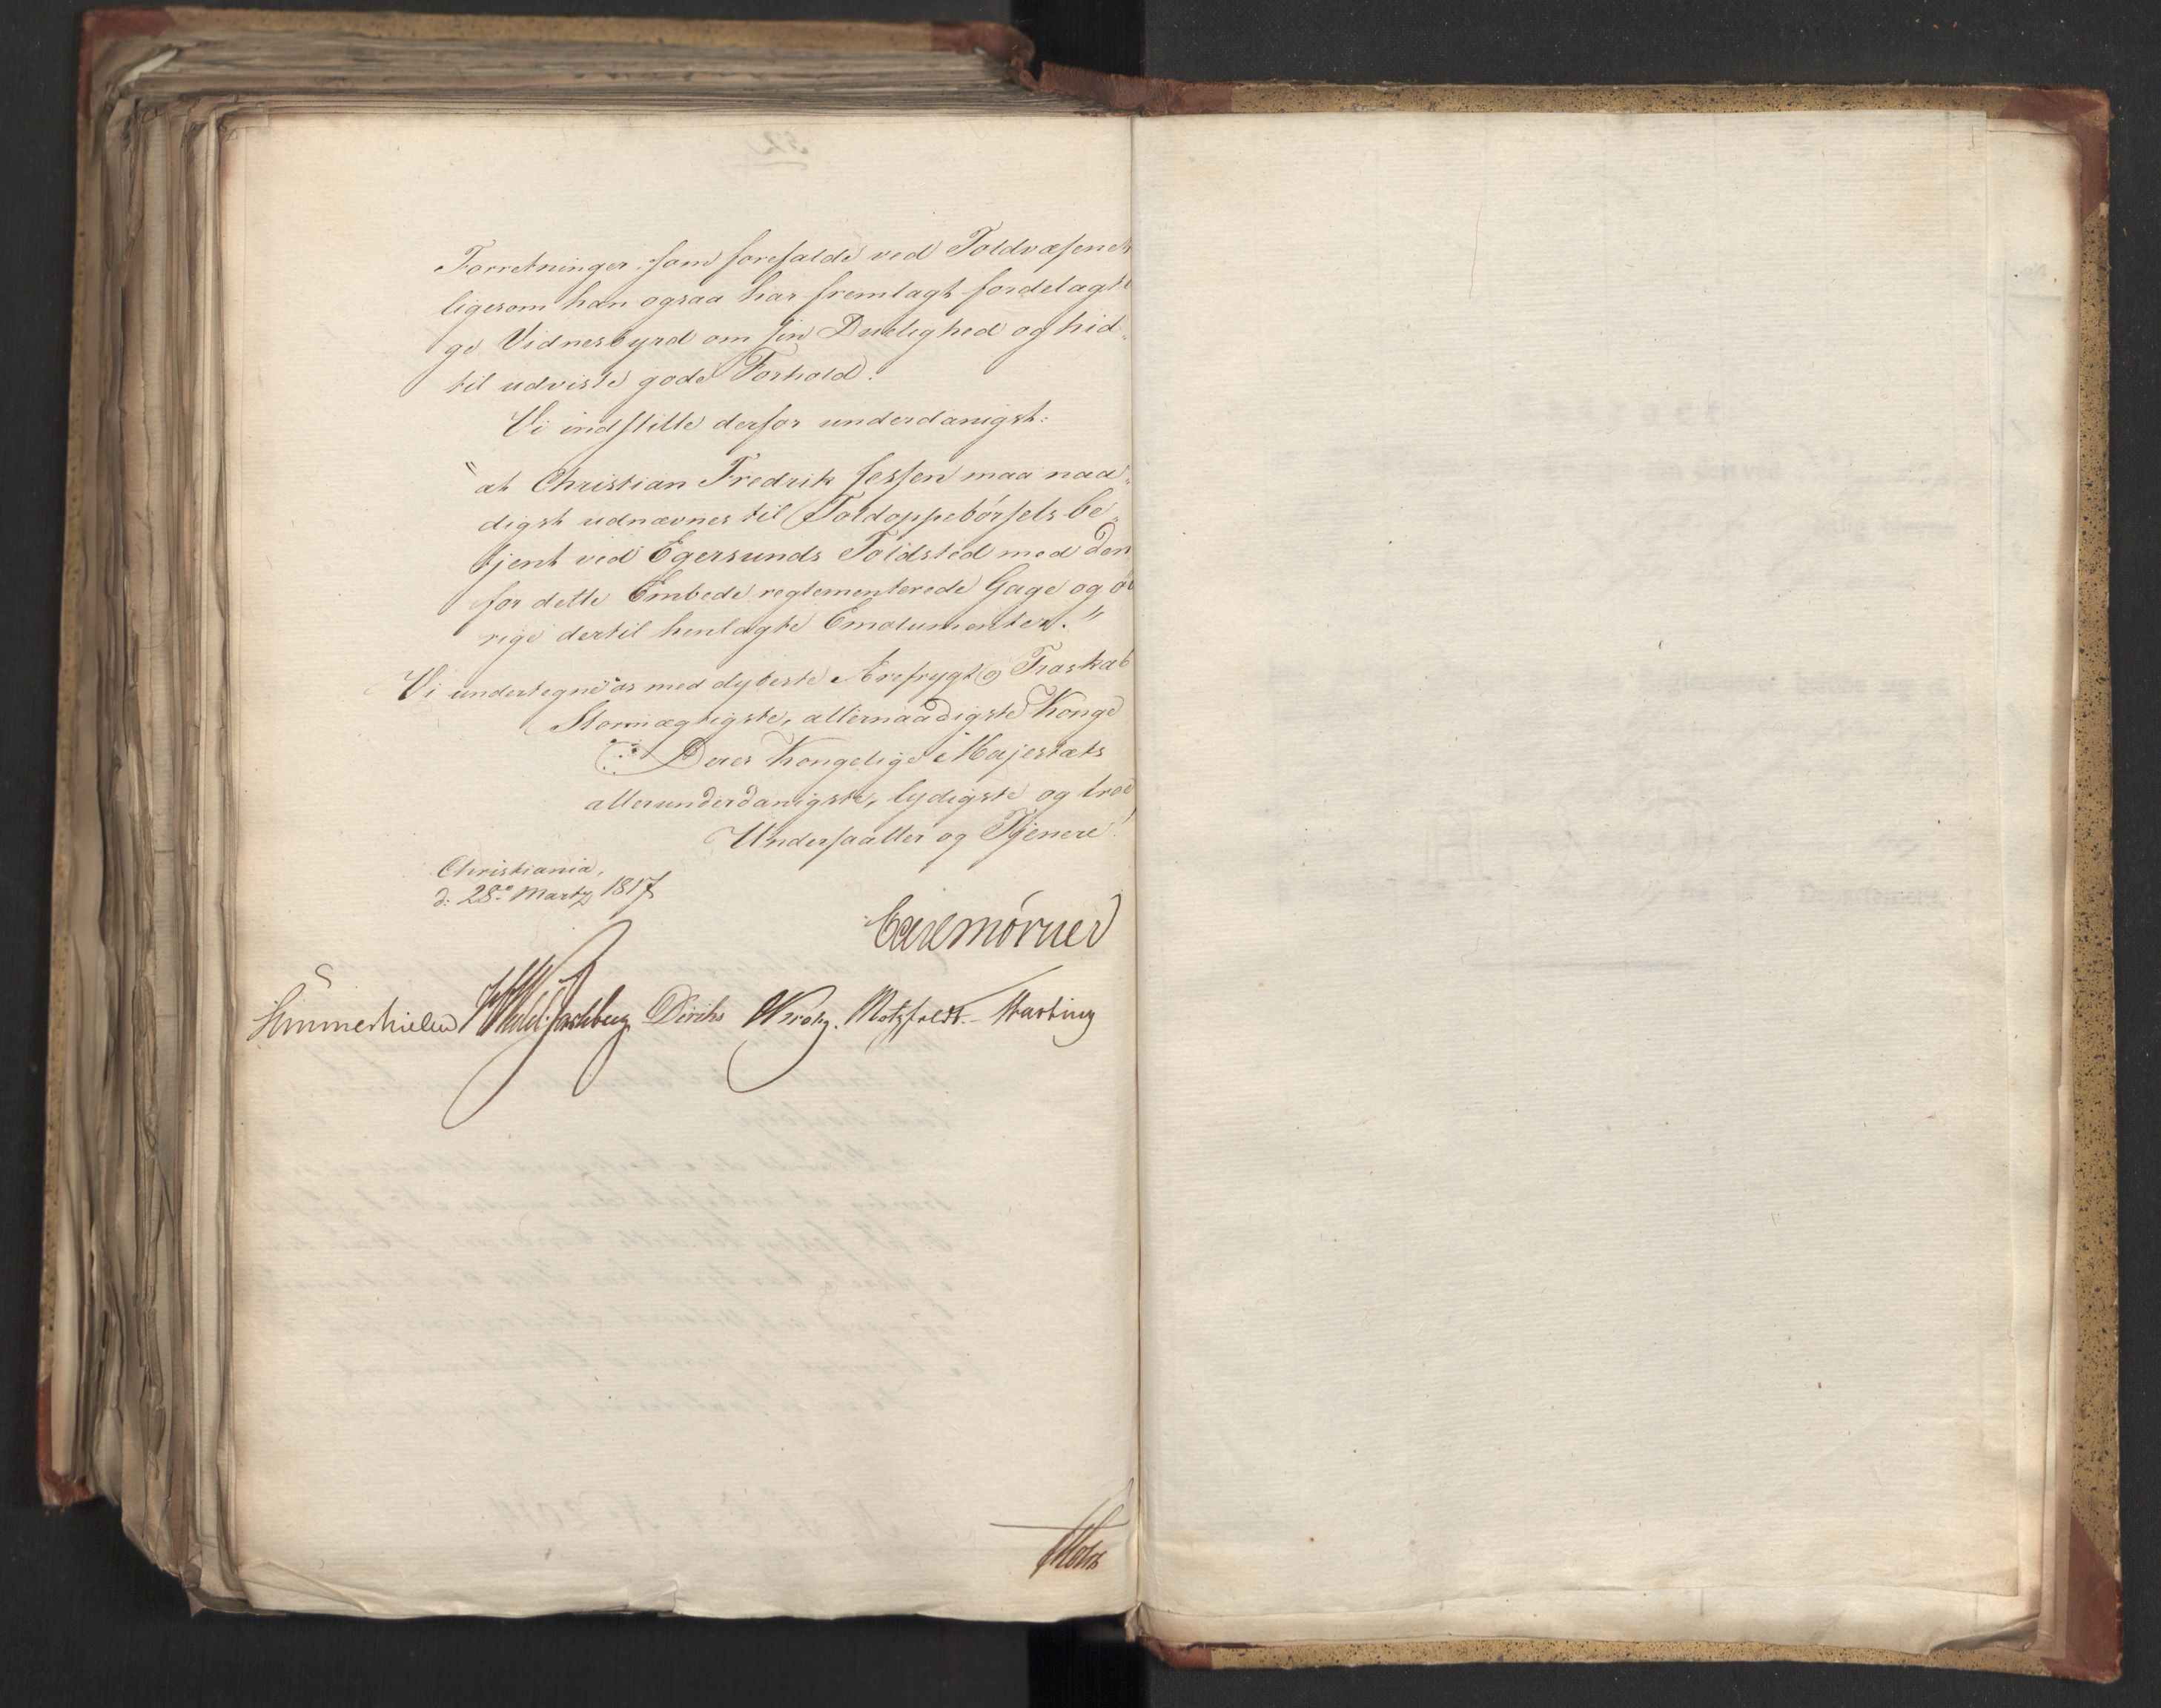 Forretninger, som forefalde ved Toldvæsenet
ligesom han ogsaa har fremlagt fordelagti
ge Vidnesbyrd om sin Duelighed og hid„
til udviste gode Forhold.
Vi indstille derfor underdanigst:
"at Christian Fredrik Jessen maa naa„
digst udnævnes til Toldoppebørselsbe„
tjent ved Egersunds Toldsted med den
for dette Embede reglementerede Gage og øv
rige dertil henlagte Emolumenter."
Vi undertegne os med dybeste Ærefrygt og Troskab
Stormægtigste, allernaadigste Konge
Deres Kongelige Majestæts
allerunderdanigste, lydigste og troe
Undersaatter og Tjenere!
Christiania,
d: 28de Martz 1817
Carl Mörner
Sommerhielm Diriks Krohg. Motzfeldt. Hasting